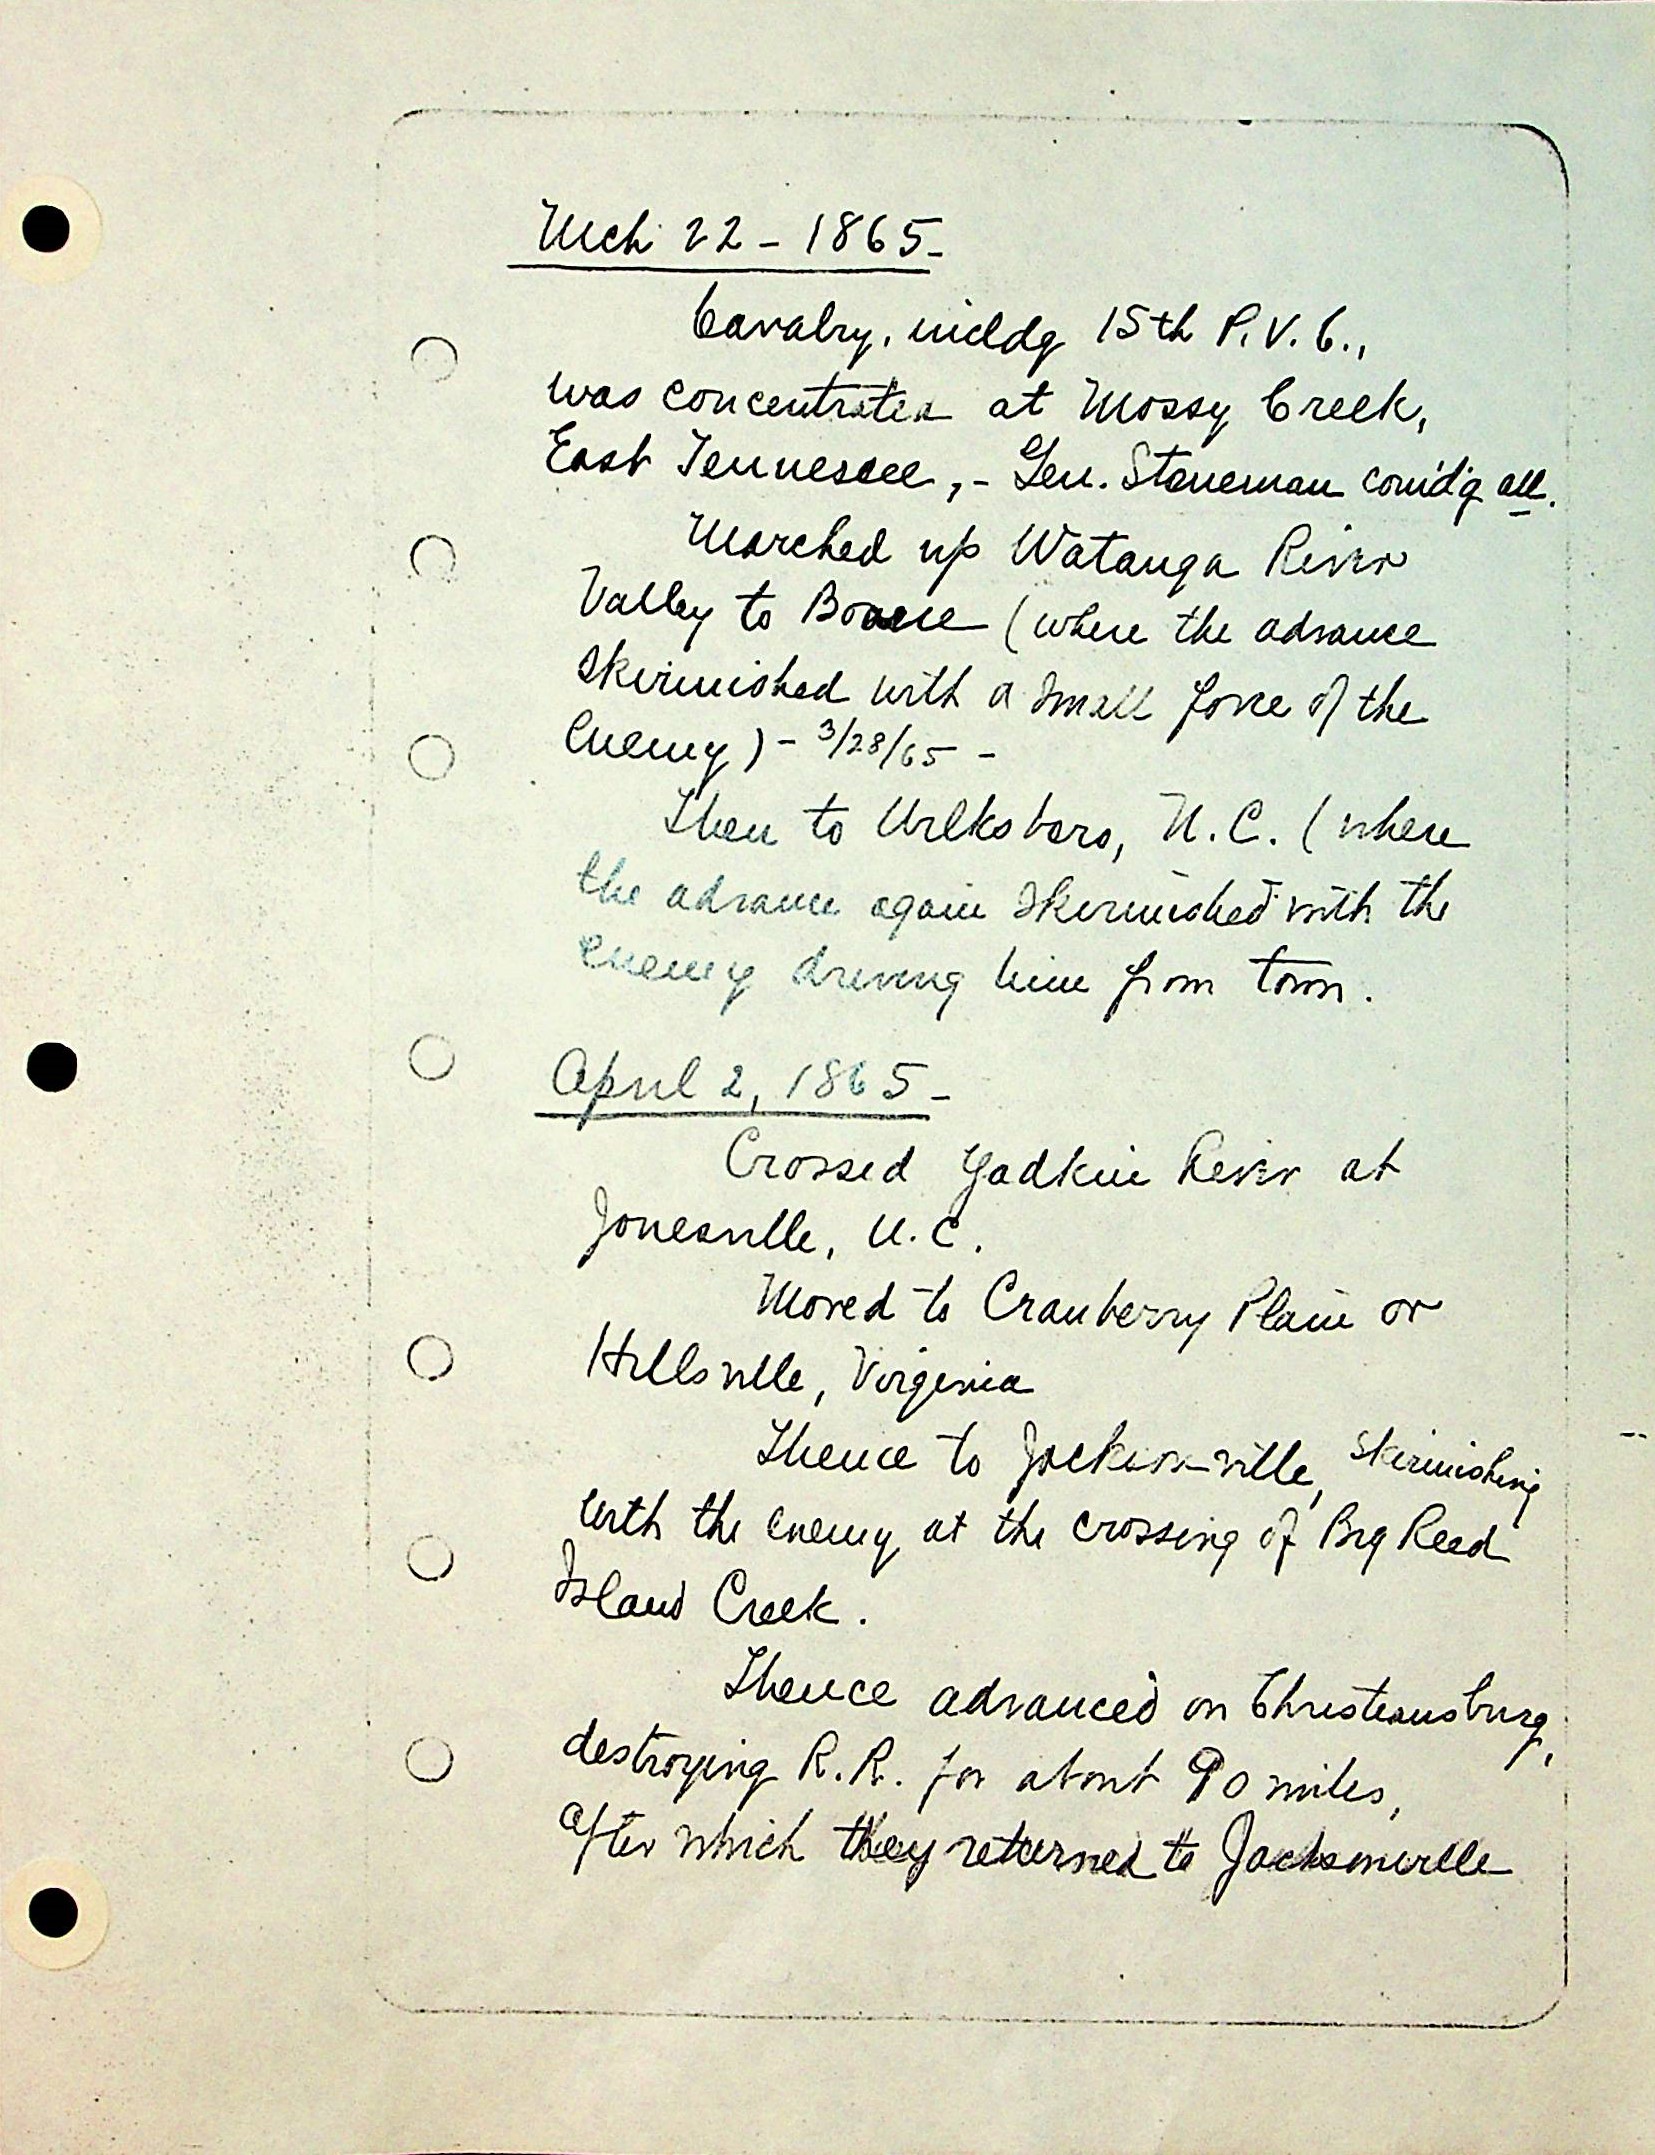 Mch 22 - 1865 -
Cavalry, incldg 15th P.V.C.,
was concentrated at Mossy Creek,
East Tennessee, - Gen. Stoneman com'd'g all.
Marched up Watauga River
Valley to Boone (where the advance
skirmished with a small force of the
enemy) - 3/28/65 -
Then to Wilksboro, N.C. (where
the advance again skirmished with the
enemy driving him from town.
April 2, 1865 -
Crossed Yadkin River at
Jonesville, N.C.
Moved to Cranberry Plain or
Hillsville, Virginia
Thence to Jacksonville, skirmishing
with the enemy at the crossing of Big Reed
Island Creek.
Thence advanced on Christiansburg,
destroying R.R. for about 90 miles,
after which they returned to Jacksonville